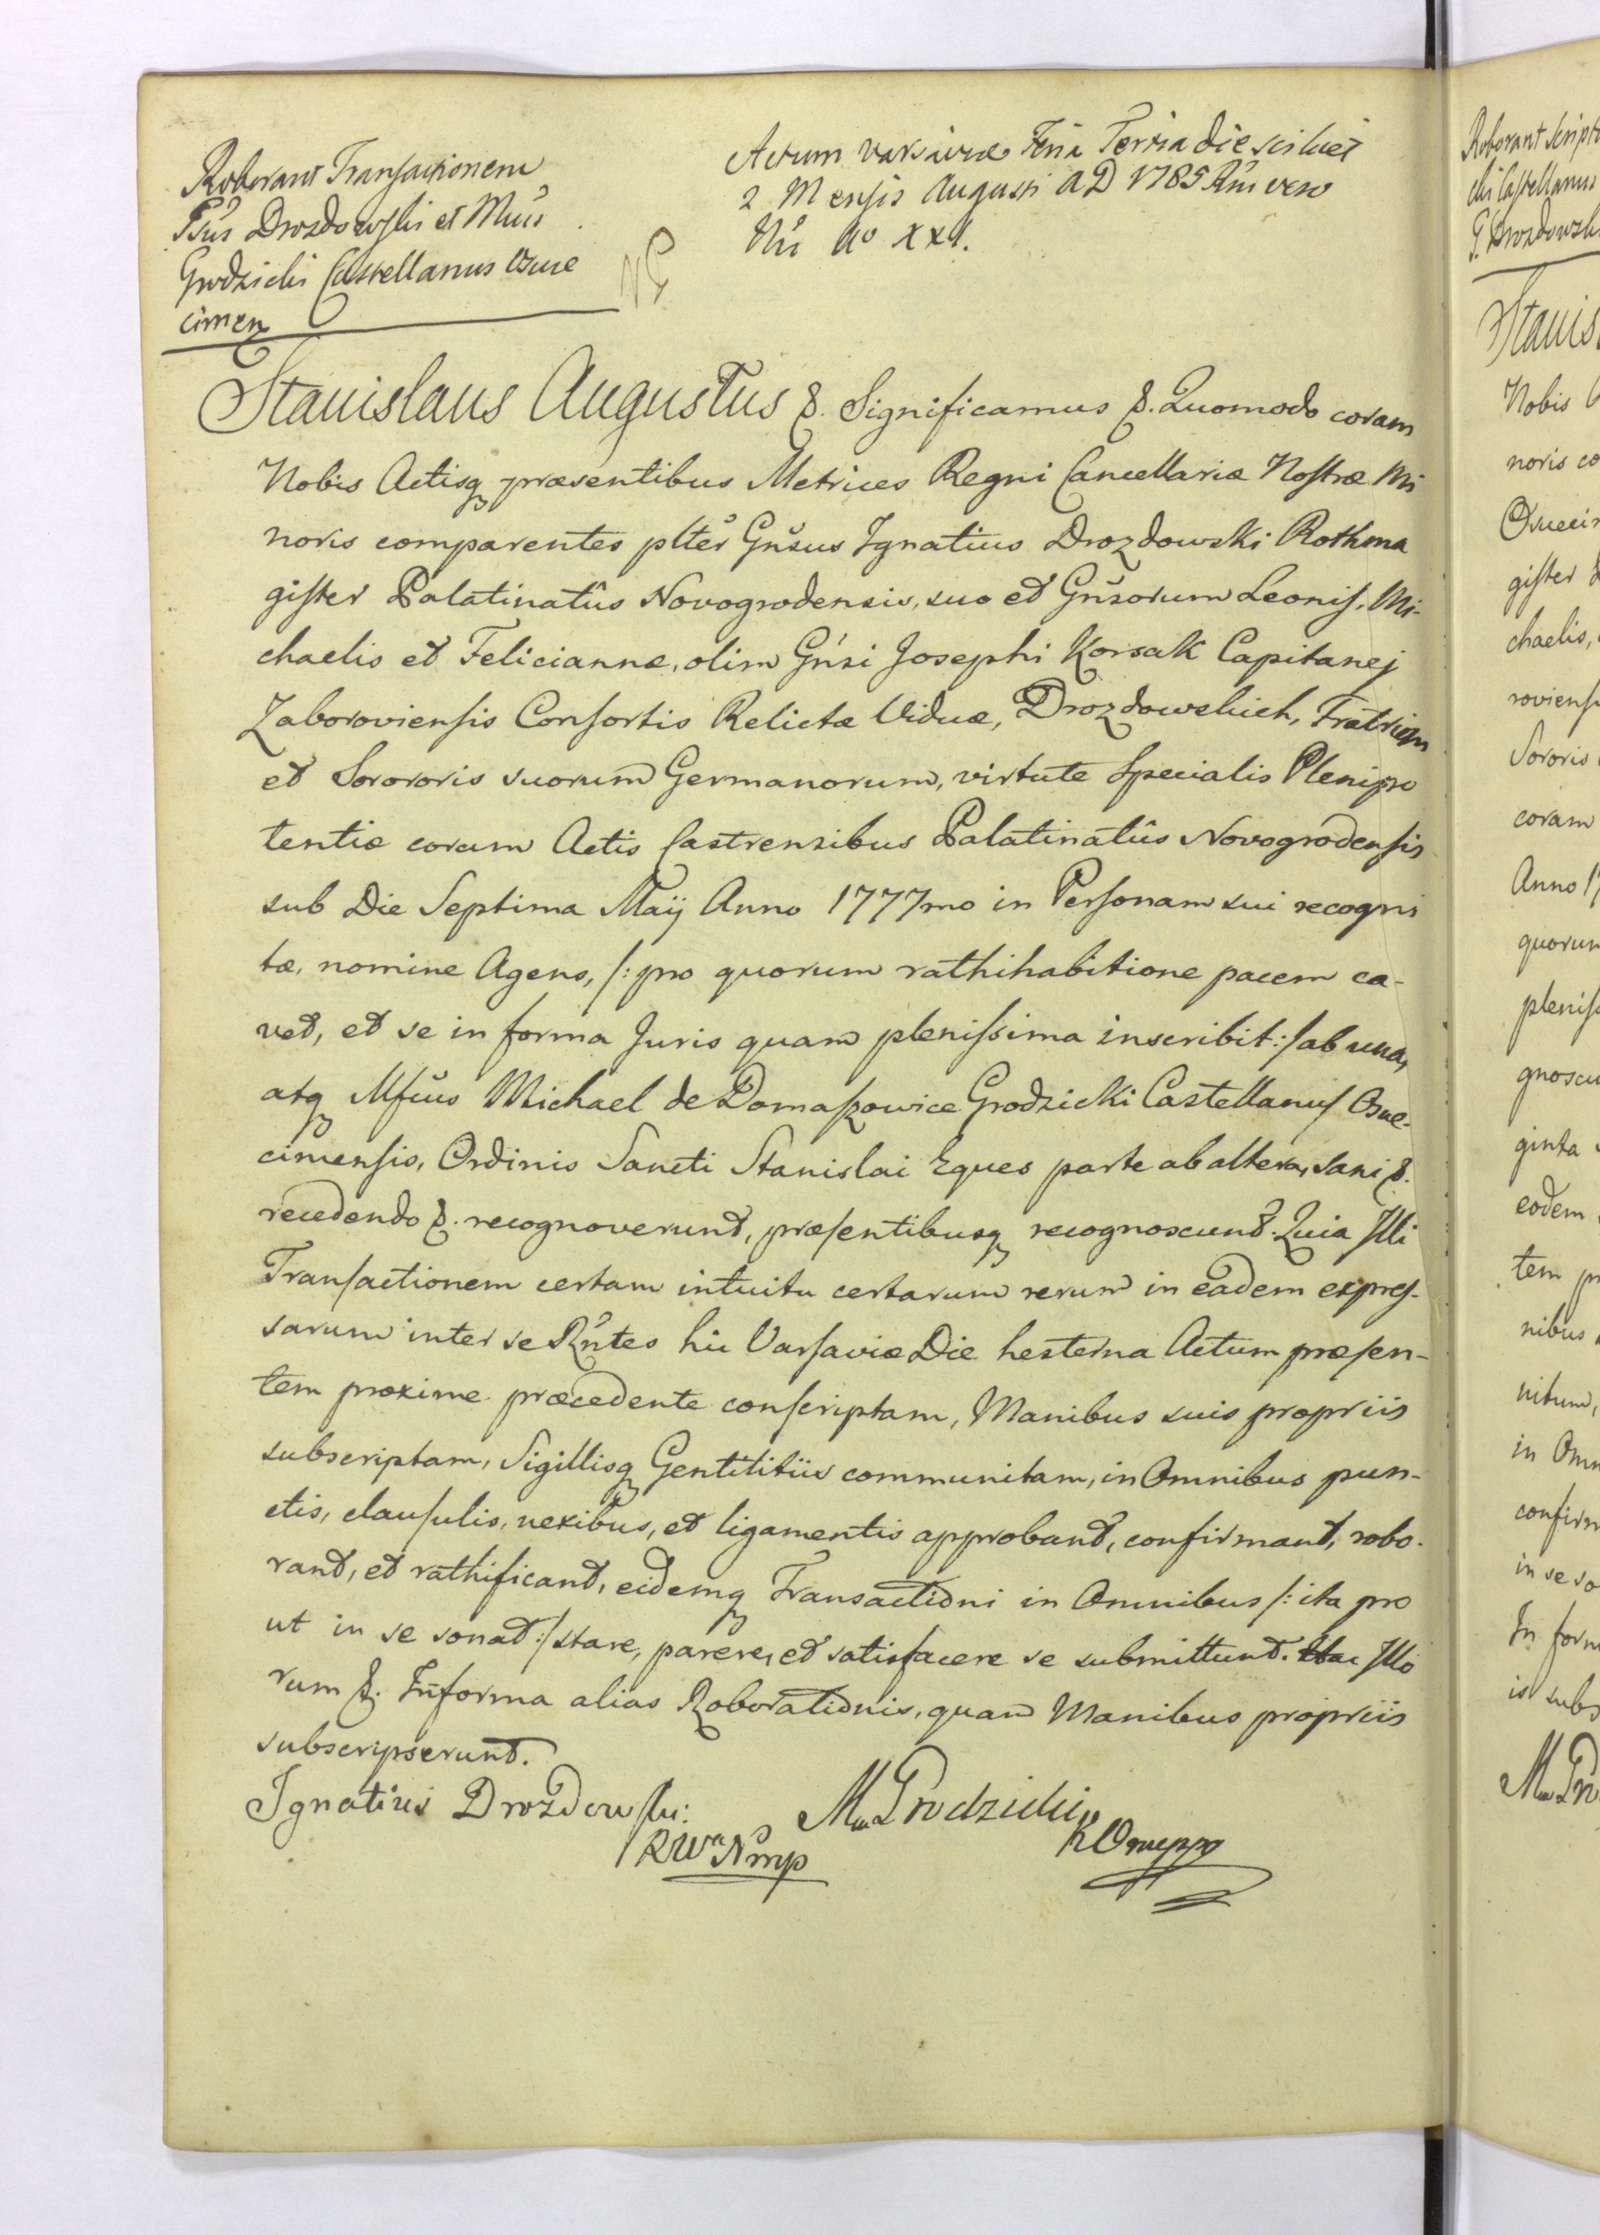 Roborant Transactionem
Gsus Drozdowski et Mcus
Grodzicki Castellanus Osvie
cimen
Actum Varsaviæ Feria Tertia die scilicet
2 Mensis Augusti AD 1785 Rni vero
Nri Ao XXI.
Stanislaus Augustus &. Significamus &. Quomodo coram
Nobis Actisq præsentibus Metrices Regni Cancellariæ Nostræ Mi
noris comparentes plter Gnsus Ignatius Drozdowski Rothma
gister Palatinatûs Novogrodensis, suo et Gnsorum Leonis, Mi-
chaelis et Feliciannæ, olim Gnsi Josephi Korsak Capitanej
Zaboroviensis Consortis Relictæ Viduæ, Drozdowskich, Fratrum
et Sorororis suorum Germanorum, virtute Specialis Plenipo
tentiæ coram Actis Castrensibus Palatinatûs Novogrodensis
sub Die Septima Maij Anno 1777mo in Personam sui recogni
tæ, nomine Agens, /: pro quorum rathihabitione pacem ca-
vet, et se in forma Juris quam plenissima inscribit :/ ab una,
atq Mfcus Michael de Domaszowice Grodzicki Castellanus Osve-
cimensis, Ordinis Sancti Stanislai Eques parte ab altera, sani &.
recedendo &. recognoverunt, præsentibusq recognoscunt. Quia Illi
Transactionem certam intuitu certarum rerum in eadem expres-
sarum inter se Rntes hic Varsaviæ Die hesterna Actum præsen-
tem proxime præcedente conscriptam, Manibus suis propriis
subscriptam, Sigillisq Gentilitiis communitam, in Omnibus pun-
ctis, clausulis, nexibus, et ligamentis approbant, confirmant, robo-
rant, et rathificant, eidemq Transactioni in Omnibus /: ita pro
ut in se sonat :/ stare, parere, et satisfacere se submittunt. Hac Illo
rum &. In forma alias Roborationis, quam Manibus propriis
subscripserunt.
Ignatius Drozdowski:
RWaN mp
M Grodzicki
KO mppo
Roborant Script
cki Castellanus
G. Drozdowsk
Stanis
Nobis
noris co
Osvecim
gister
chaelis,
roviensi
Sororis
coram
Anno 17
quorum
plenis
gnoscu
ginta
eodem
tem pr
nibus
nitum,
in Omn
confirm
in se so
In form
is subs
M Gro